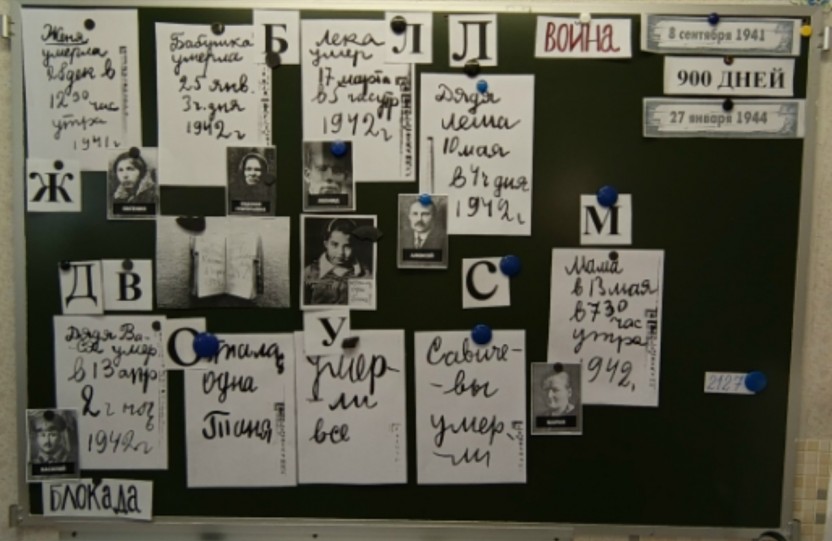 Женя
умерла
28 дек в
12 30 час
утра
1941 г
Ж
Бабушка
умерла
25 янв.
3 ч. дня
1942 г
Б
Лека
умер
17 марта
в 5 час утр
1942 г
Л
Л
Дядя
Леша
10 мая
в 4 ч дня
1942 г
ВОЙНА
8 сентября 1941
900 ДНЕЙ
27 января 1944
М
Мама
в 13 мая
в 7 30
час
утра
1942
С
Савиче-
-вы
умер
-ли
У
умер-
ли
все
О
одна
Таня
Д
В
Дядя Ва-
ся умер
в 13 апр
2 ч ноч
1942 г
БЛОКАДА
2127